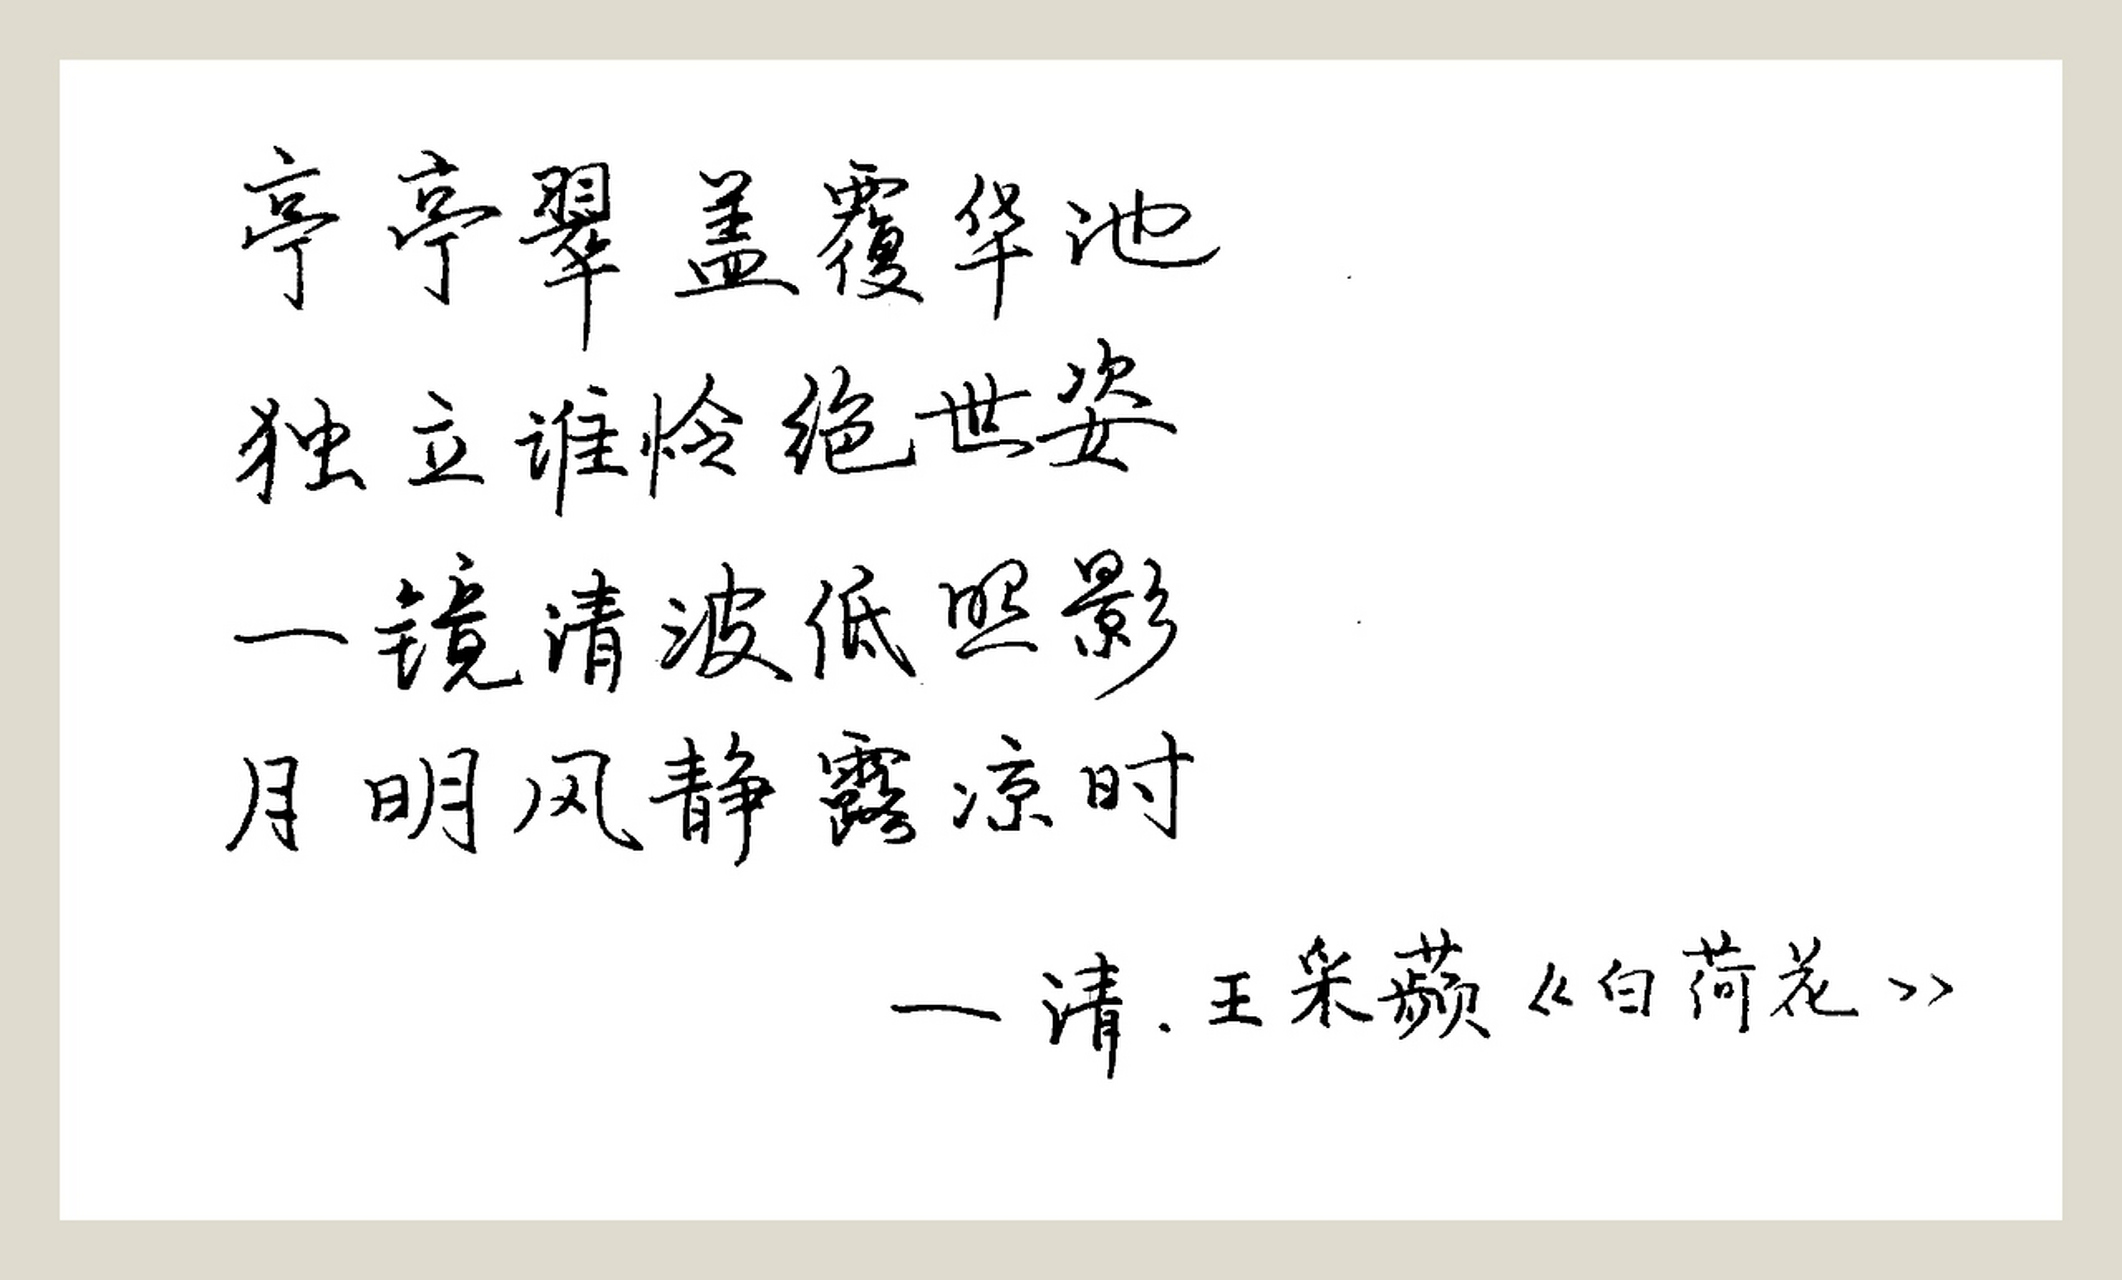 亭亭翠盖覆华池
独立谁怜绝世姿
一镜清波低照影
月明风静露凉时
一清.王采蘋《白荷花》